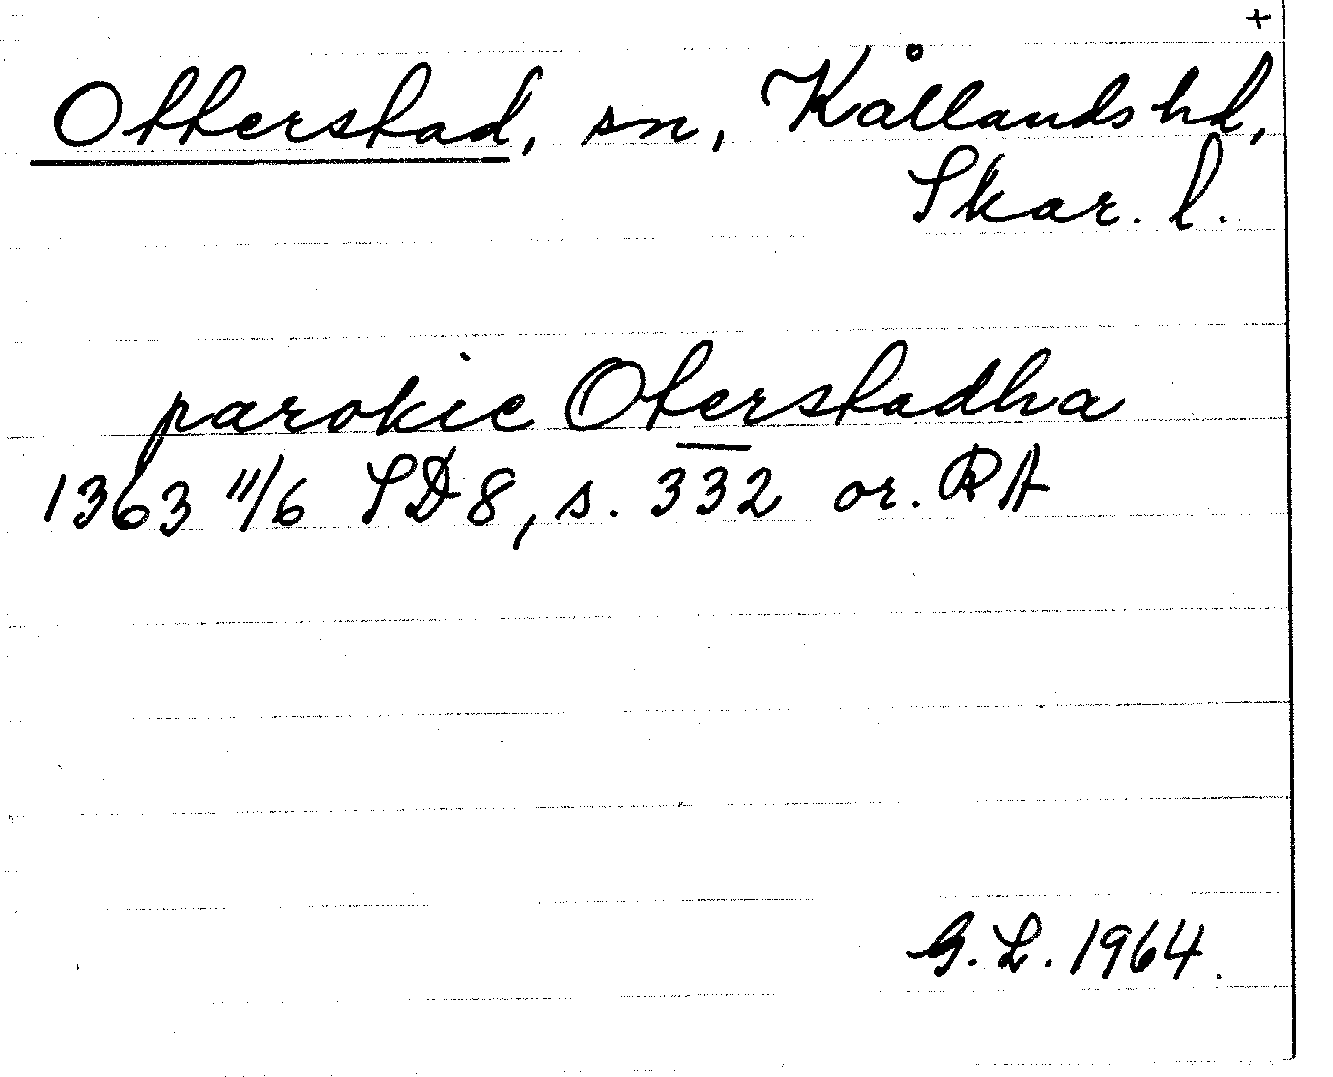 +
Otterstad, sn, Kållands hd,
Skar. l.
parokie Oterstadha
1363 11/6 SD 8, s. 332 or. RA
G.L. 1964.